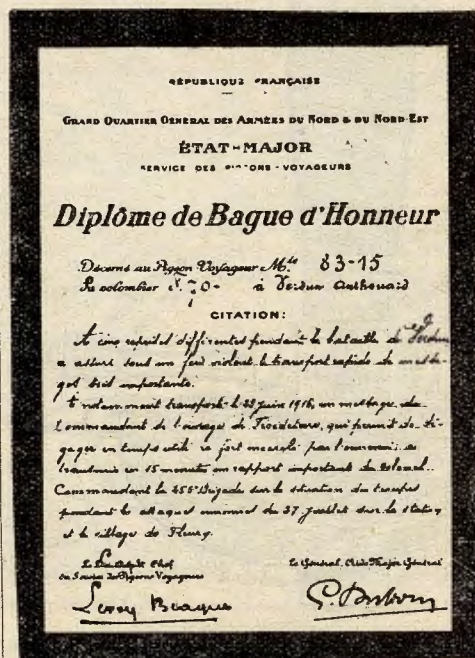 RÉPUBLIQUE FRANÇAISE
GRAND QUARTIER GÉNÉRAL DES ARMÉES DU NORD & DU NORD-EST
ÉTAT-MAJOR
SERVICE DES PIGEONS-VOYAGEURS
Diplôme de Bague d'Honneur
Décerné au Pigeon Voyageur Mle 83-15
Du colombier à Verdun
CITATION:
A cinq reprises différentes pendant la bataille de Verdun
a assuré sous un feu violent le transport rapide de messa-
ges très importants.
A notamment transporté le 23 Juin 1916, un message du
Commandant de l'ouvrage de Froideterre, qui permit de dé-
gager en temps utile ce fort encerclé par l'ennemi; a
transmis en 15 minutes un rapport important du Colonel
Commandant la 255e Brigade sur la situation des troupes
pendant les attaques ennemies du 27 Juillet sur la station
et le village de Fleury.
Le Chef Le Général, Aide Major Général
du Service des Pigeons Voyageurs